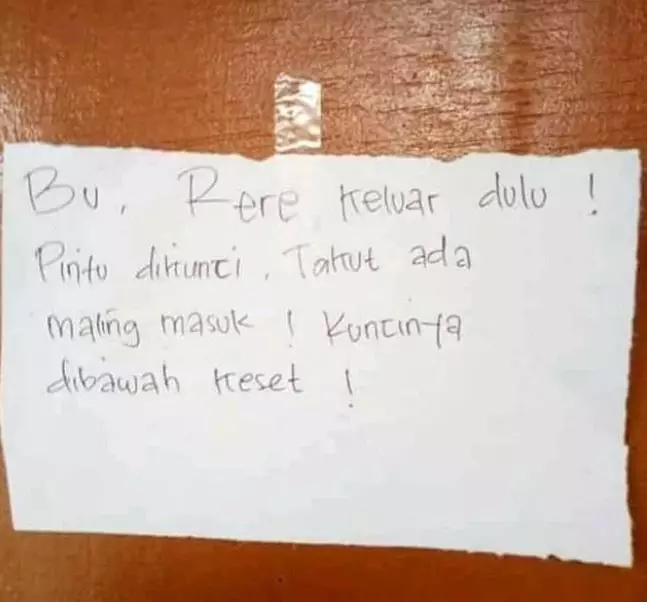 Bu, Rere keluar dulu !
Pintu dikunci, Takut ada
maling masuk ! Kuncinya
dibawah keset !